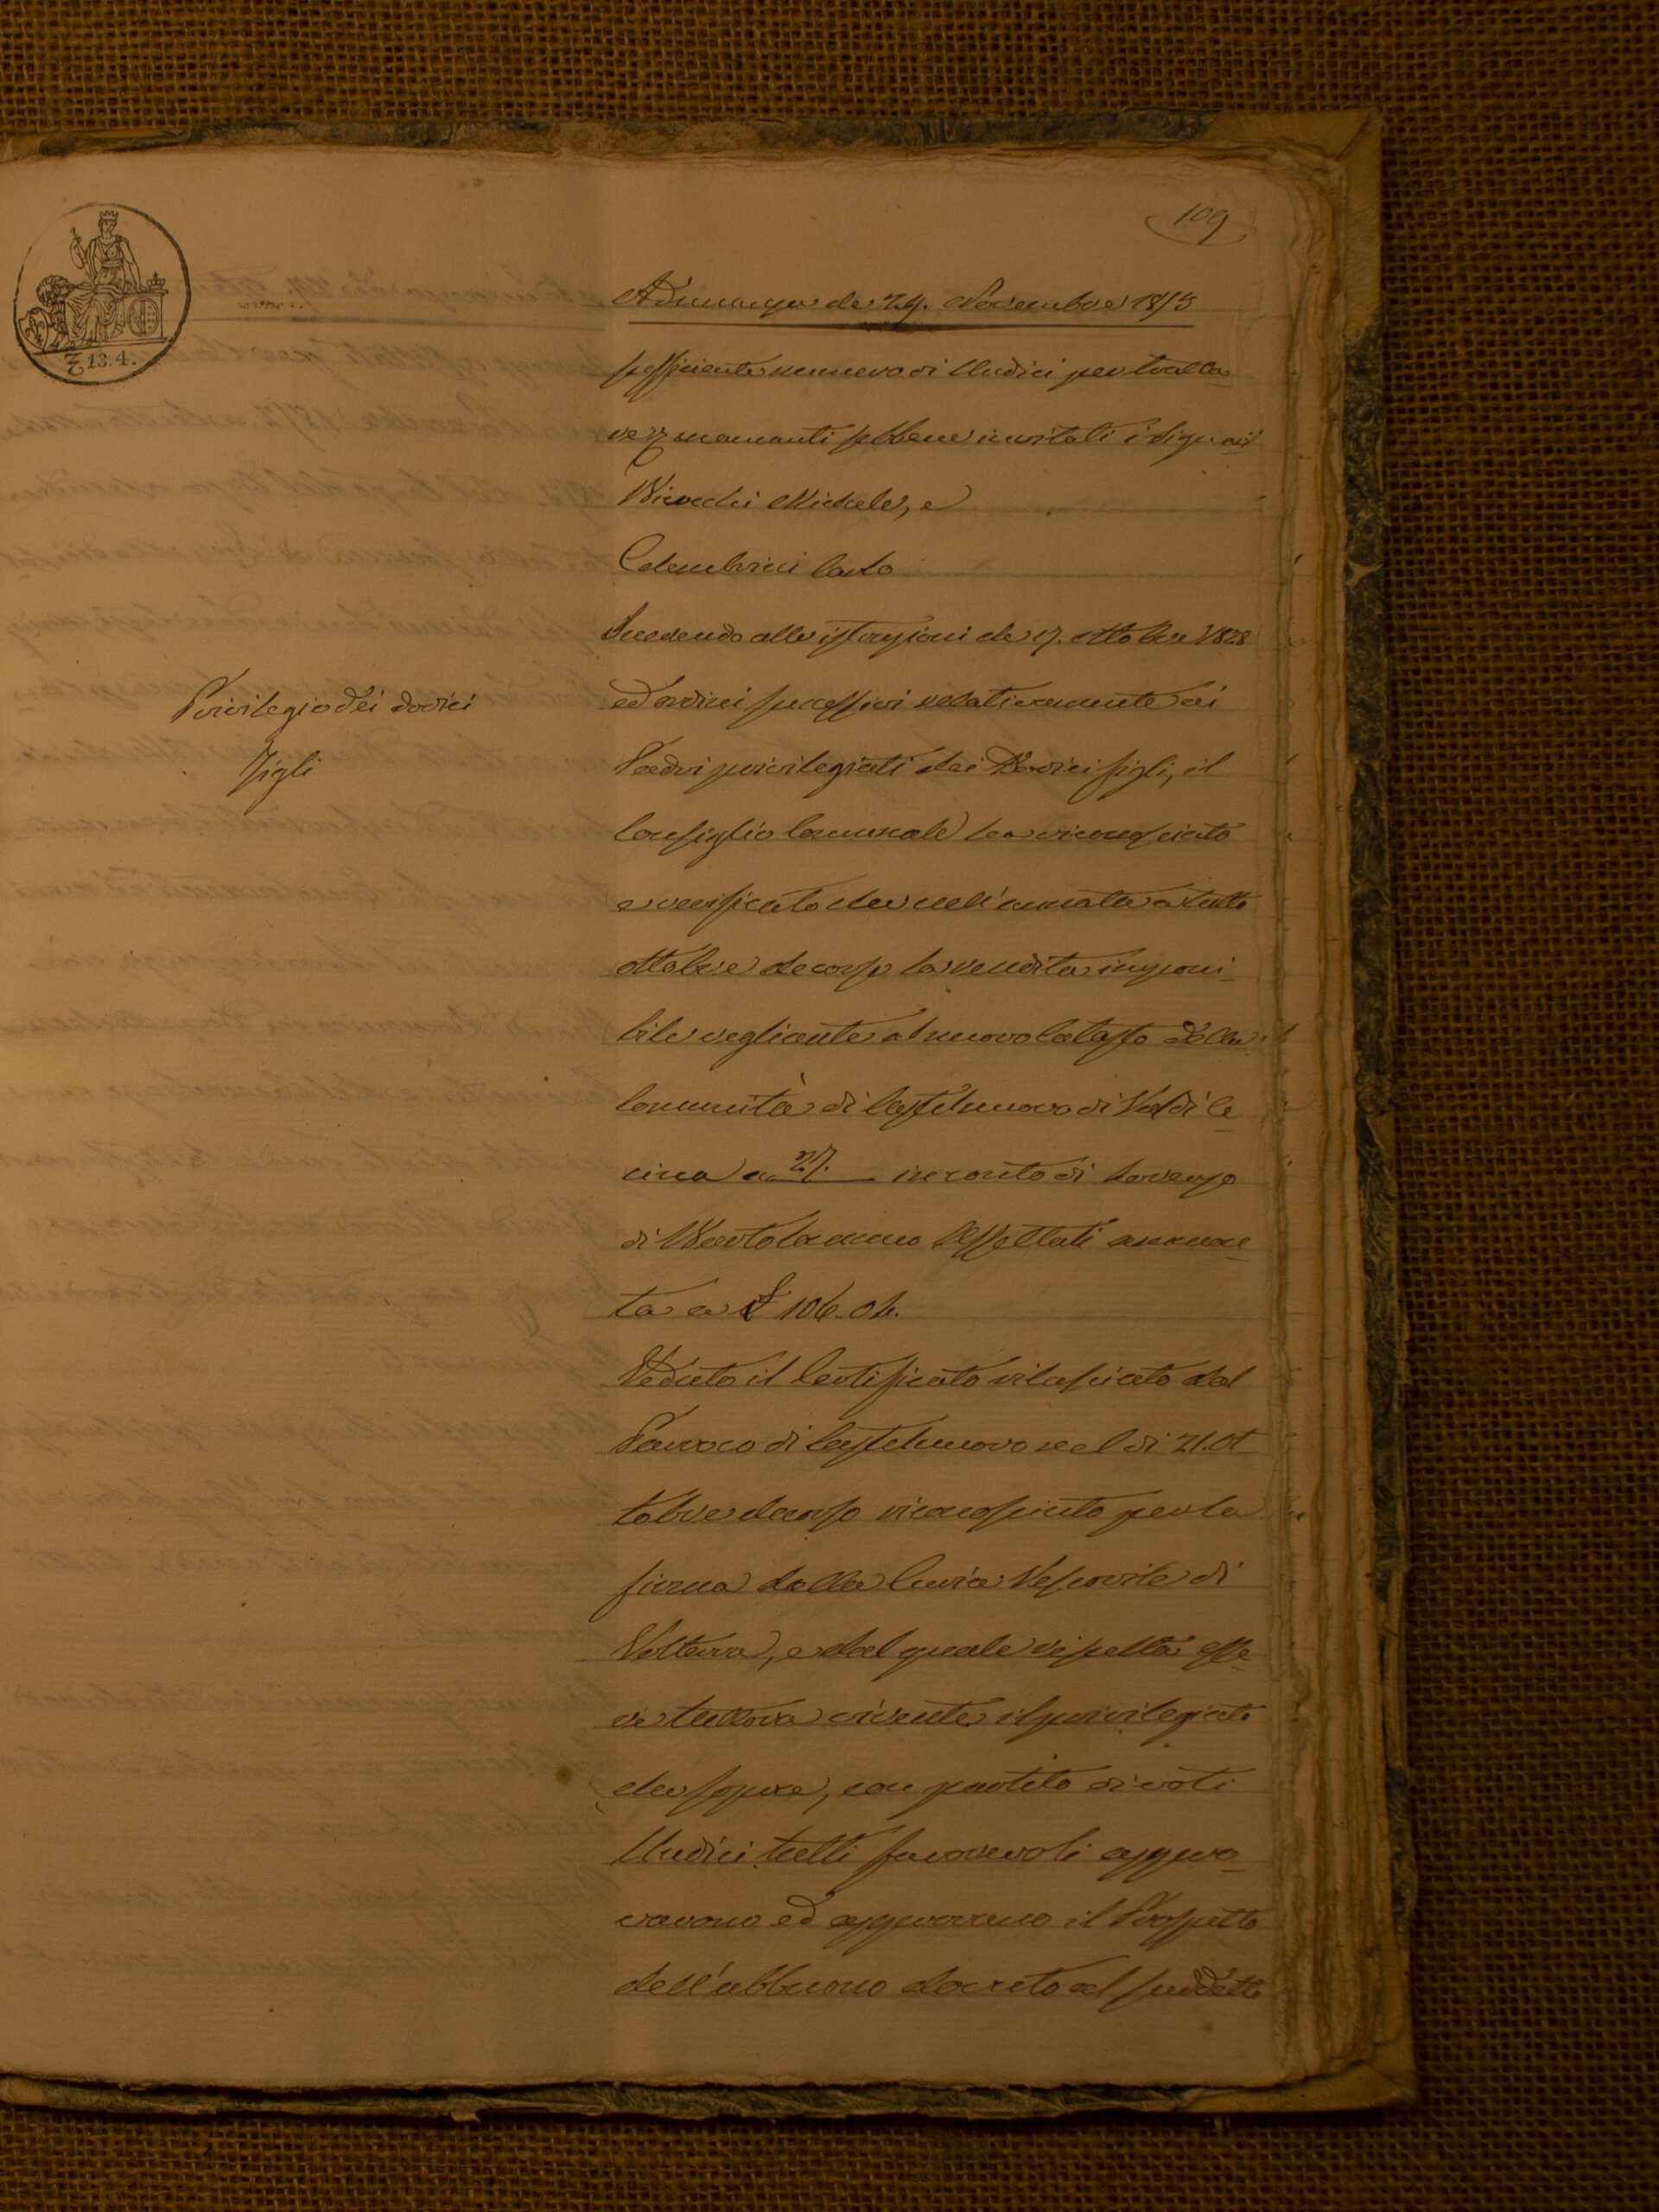 109
13.4.
Adunanza de 24. Novembre 1853
sufficiente numero di Undici per tratta-
re, mancanti sebbene invitati i Signori
Michele, e
Colembrini Carlo
Inerendo alle istruzioni de 17. Ottobre 1828
Privilegio dei dodici
figli
ed ordini successivi relativamente ai
Padri privilegiati dei Dodici figli, il
Consiglio Comunale ha riconosciuto
e verificato che nell'annata a tutto
Ottobre decorso la rendita imponi-
bile vegliante al nuovo Catasto della
Comunità di Castelnuovo di Val di Ce
cina a 27. in conto di Lorenzo
di Bartolommeo ammon
ta a £ 106.04.
Veduto il Certificato rilasciato dal
Parroco di Castelnuovo nel dì 21. Ot
tobre decorso riconosciuto per la
firma dalla Curia Vescovile di
Volterra, e dal quale risulta esse-
re tuttora vivente il privilegiato
che sopra, con partito di voti
Undici tutti favorevoli appro-
varono ed approvano il Prospetto
dell'abbuono docuto al suddetto